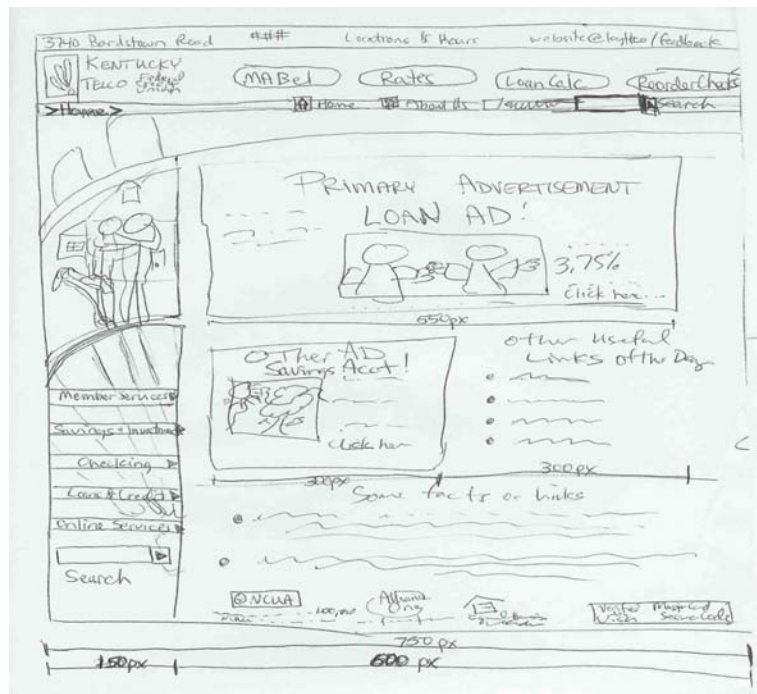 3740 Bardstown Road ### Locations & Hours website@kytelco/feedback
KENTUCKY
TELCO Federal
MABel Rates Loan Calc Reorder Checks
>Home> Home About Us Search
PRIMARY ADVERTISEMENT
LOAN AD!
3,75%
Click here...
550px
OTher AD
Savings Acct!
Click her
other Useful
Links of the Day
300px 300px
Some facts or links
Member Services
Savings + Investments
Checking
Loans & Credit
Online Services
Search
@NCUA
100,000
Alliance
One
Verified Visa MasterCard SecureCode
750px
150px 600 px